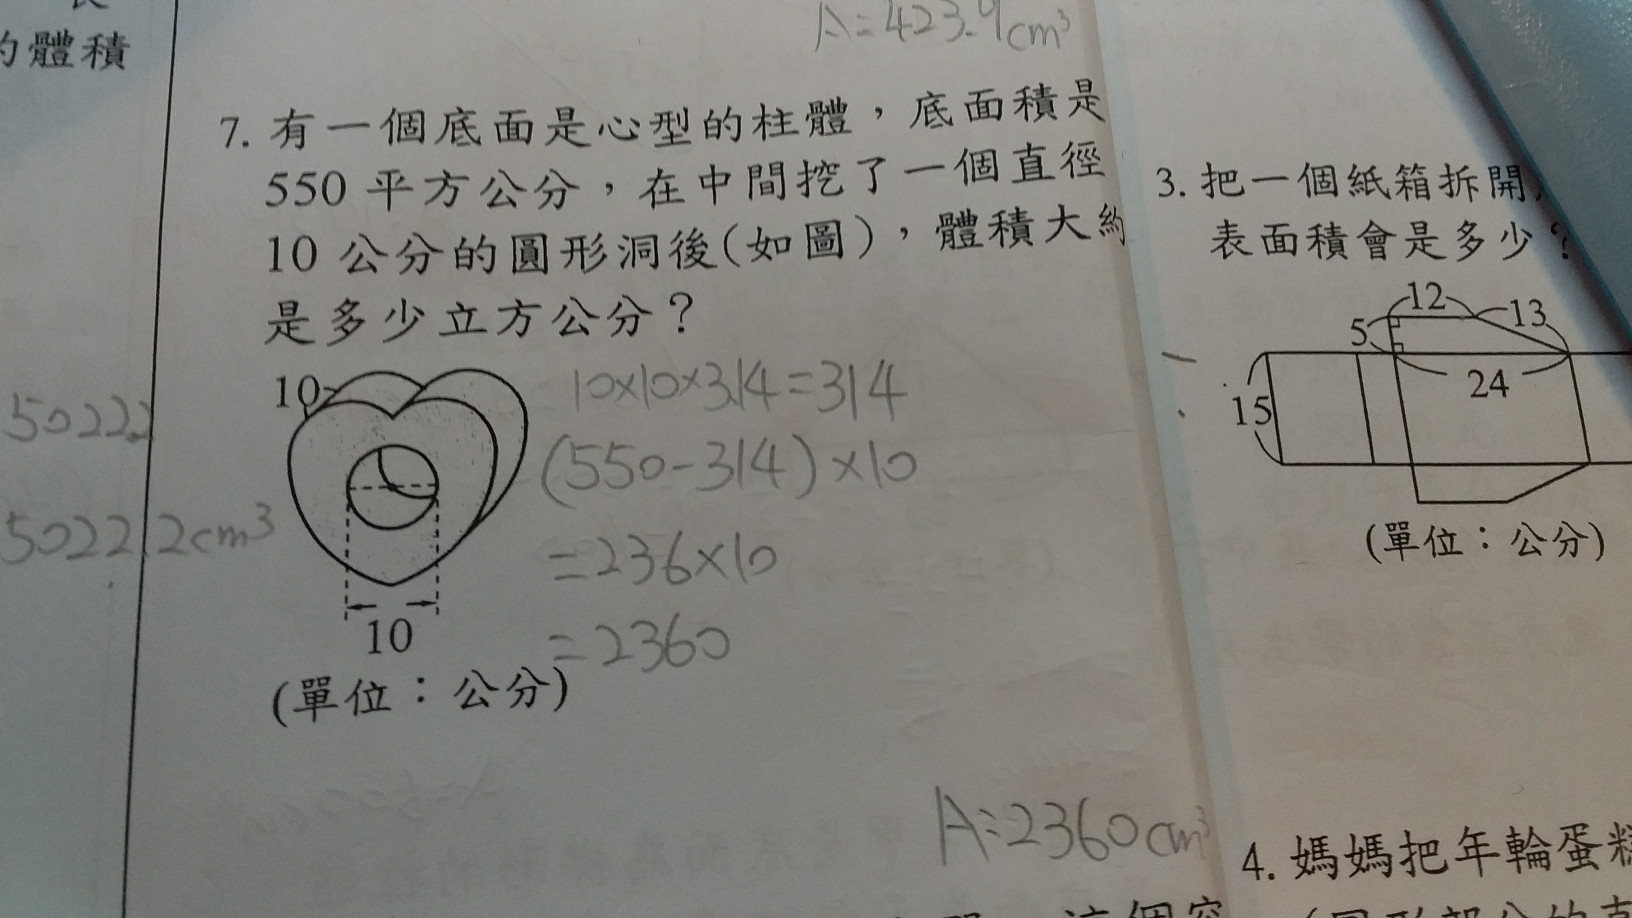 的體積
5022.2
5022.2cm³
A=423.9cm³
7. 有一個底面是心型的柱體，底面積是
550 平方公分，在中間挖了一個直徑
10 公分的圓形洞後(如圖)，體積大約
是多少立方公分？
10
10
(單位：公分)
10×10×3.14=314
(550-314)×10
=236×10
=2360
A:2360cm³
3. 把一個紙箱拆開，
表面積會是多少？
12
13
5
24
15
(單位：公分)
4. 媽媽把年輪蛋糕